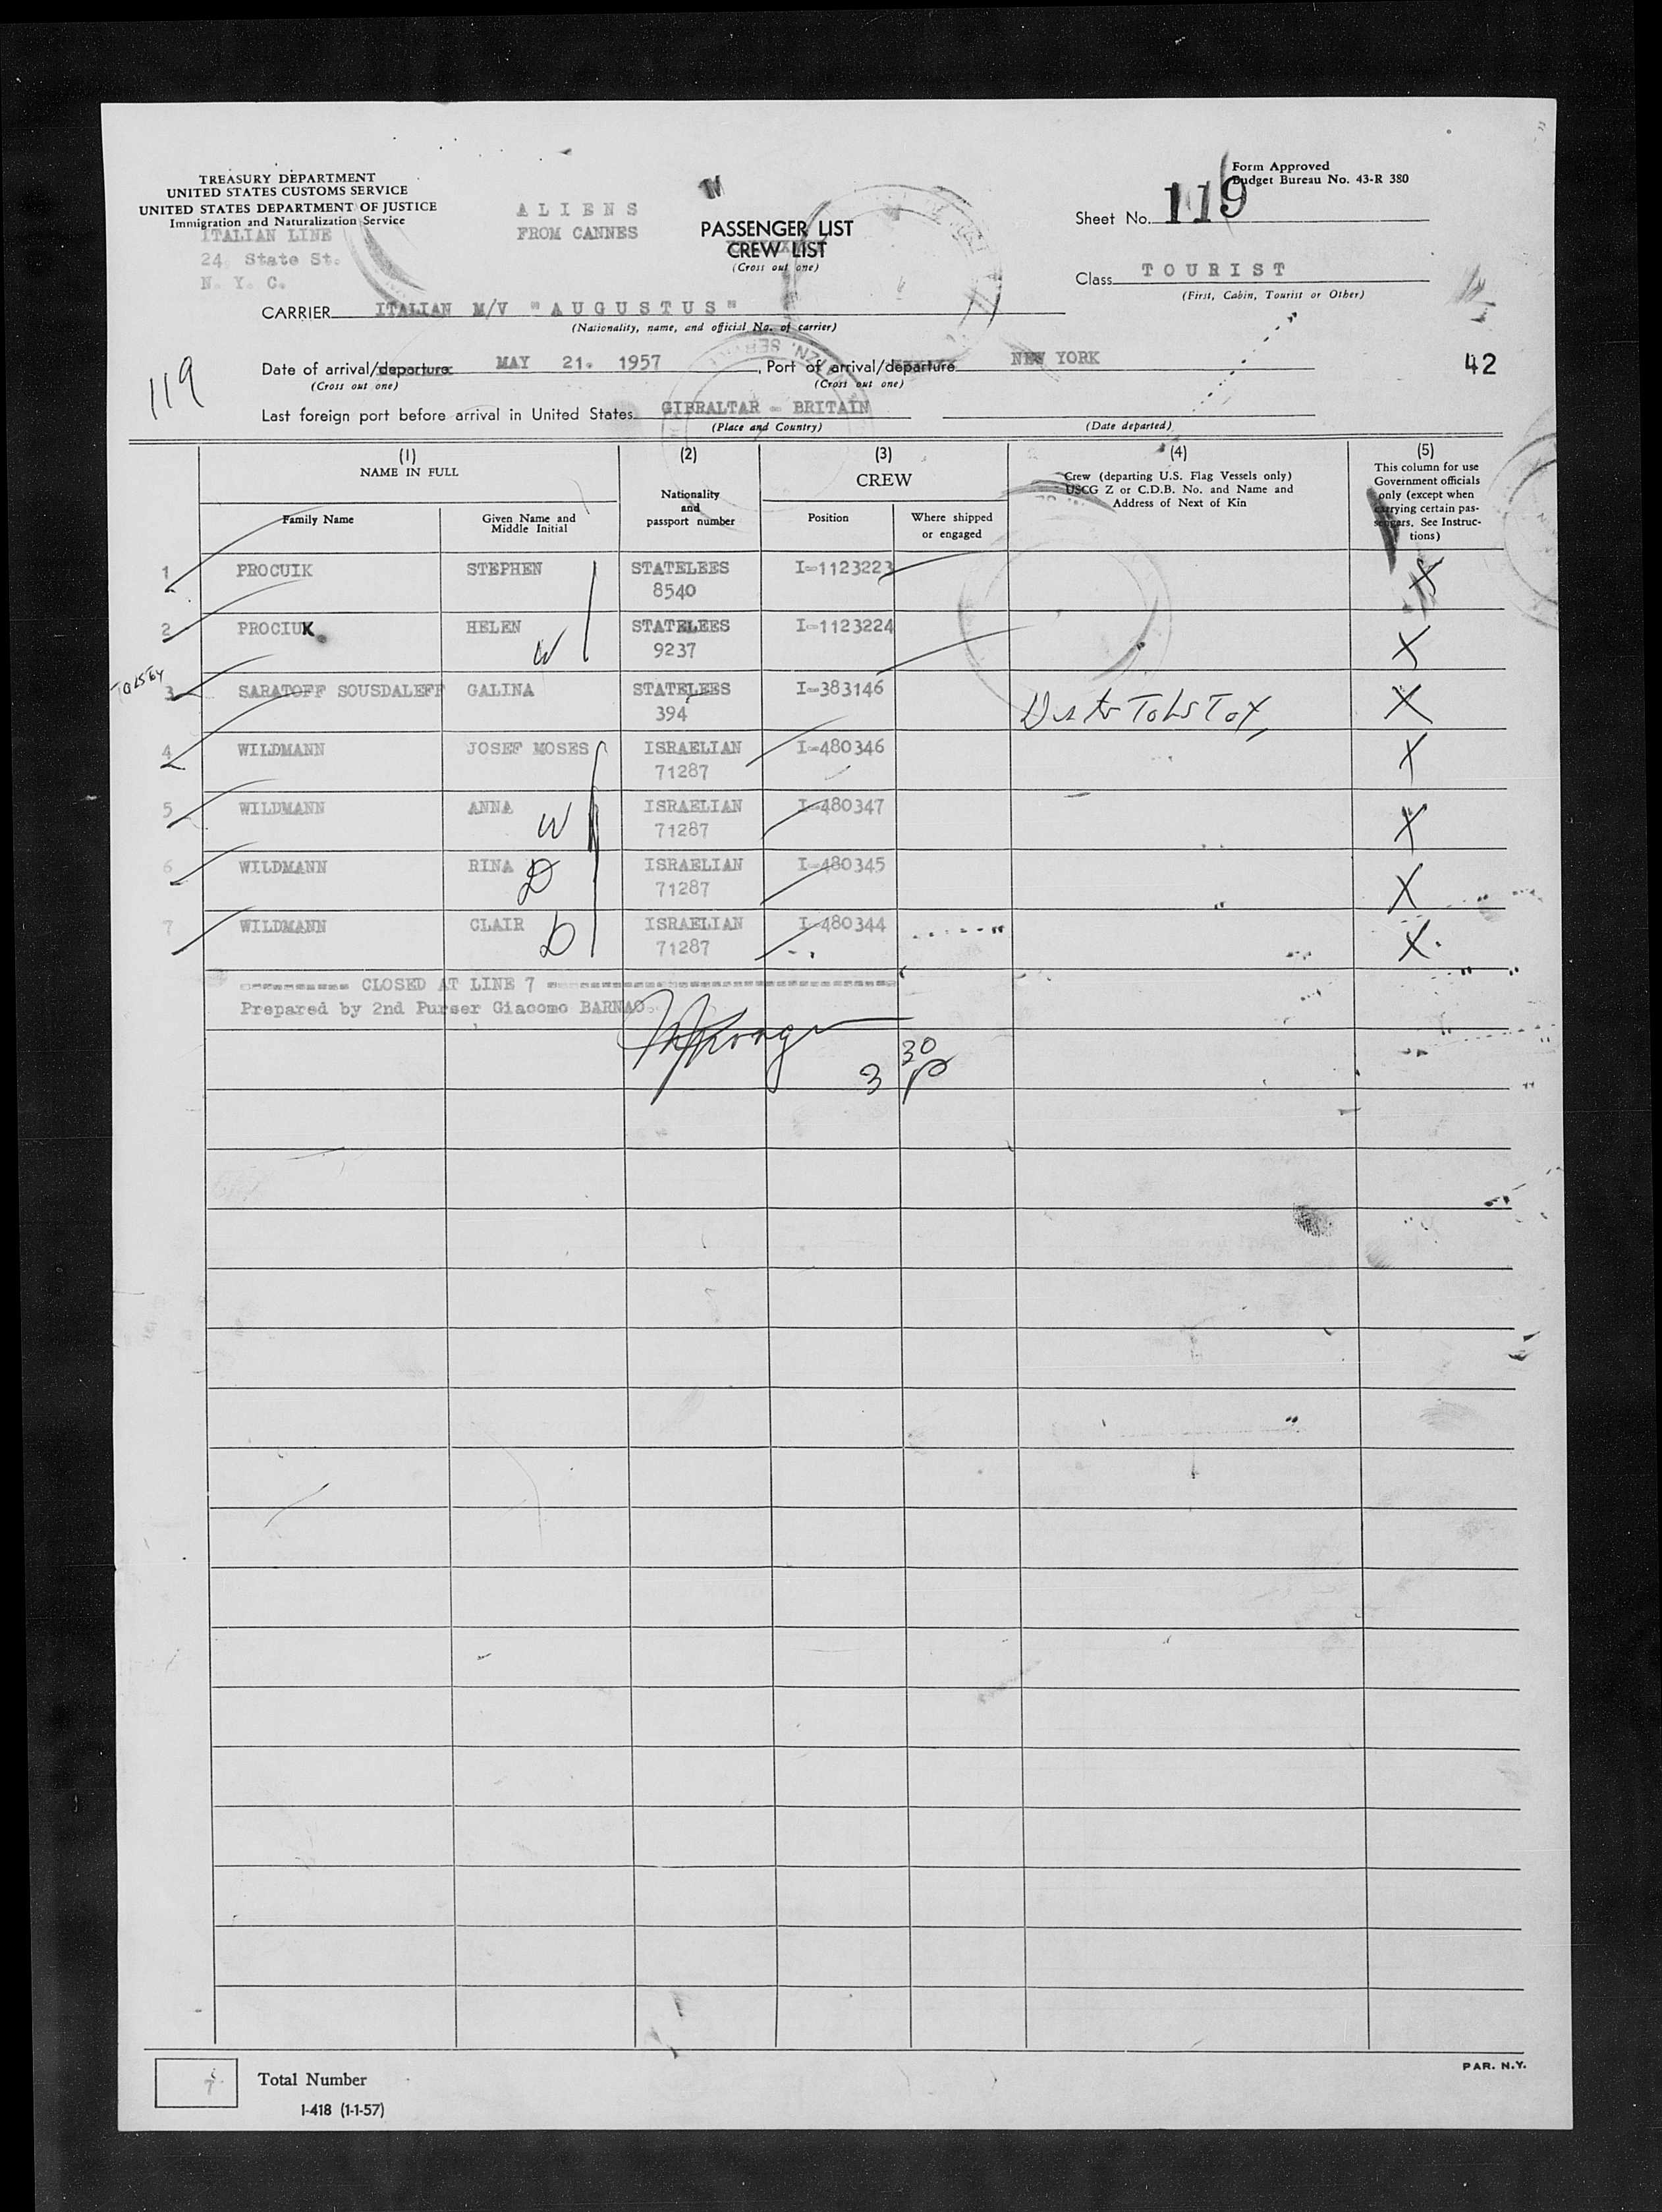 TREASURY DEPARTMENT
UNITED STATES CUSTOMS SERVICE
UNITED STATES DEPARTMENT OF JUSTICE
Immigration and Naturalization Service
ITALIAN LINE
24 State St.
N. Y. C.
A L I E N S
FROM CANNES
PASSENGER LIST
CREW LIST
(Cross out one)
Form Approved
Budget Bureau No. 43-R 380
Sheet No. 119
Class T O U R I S T
(First, Cabin, Tourist or Other)
CARRIER ITALIAN M/V "A U G U S T U S"
(Nationality, name, and official No. of carrier)
119
Date of arrival/departure MAY 21. 1957, Port of arrival/departure NEW YORK
42
(Cross out one) (Cross out one)
Last foreign port before arrival in United States GIBRALTAR - BRITAIN
(Place and Country) (Date departed)
(1) NAME IN FULL
Family Name
Given Name and Middle Initial
(2)
Nationality and passport number
(3) CREW
Position
Where shipped or engaged
(4)
Crew (departing U.S. Flag Vessels only)
USCG Z or C.D.B. No. and Name and
Address of Next of Kin
(5)
This column for use
Government officials
only (except when
carrying certain pas-
sengers. See Instruc-
tions)
1 PROCUIK STEPHEN STATELEES I-1123223 X
8540
2 PROCIUK HELEN STATELEES I-1123224 X
W 9237
3 SARATOFF SOUSDALEFF GALINA STATELEES I-383146 X
394 ToLSToY
4 WILDMANN JOSEF MOSES ISRAELIAN I-480346 X
71287
5 WILDMANN ANNA ISRAELIAN I-480347 X
W 71287
6 WILDMANN RINA ISRAELIAN I-480345 X
D 71287
7 WILDMANN CLAIR ISRAELIAN I-480344 X
D 71287
---------- CLOSED AT LINE 7 ----------
Prepared by 2nd Purser Giacomo BARNAO.
3 30 P
7 Total Number
I-418 (1-1-57)
PAR. N.Y.